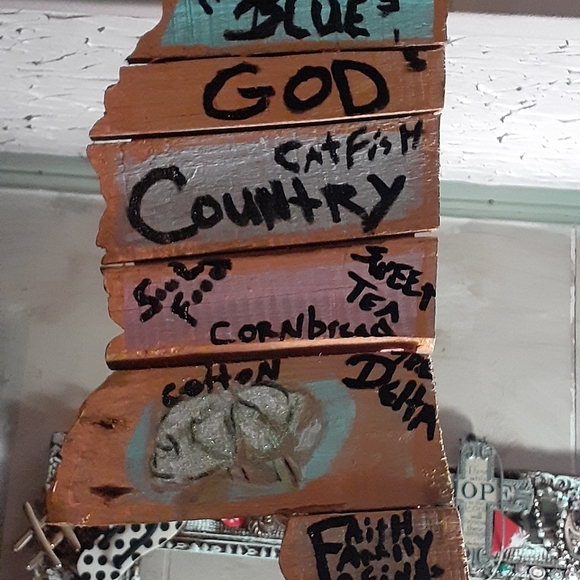 BLUE'S
GOD'S
CATFISH
COUNTRY
SWEET
TEA
CORNbread
COTTON
THE
DElTA
FAITH
FAMILY
OPE